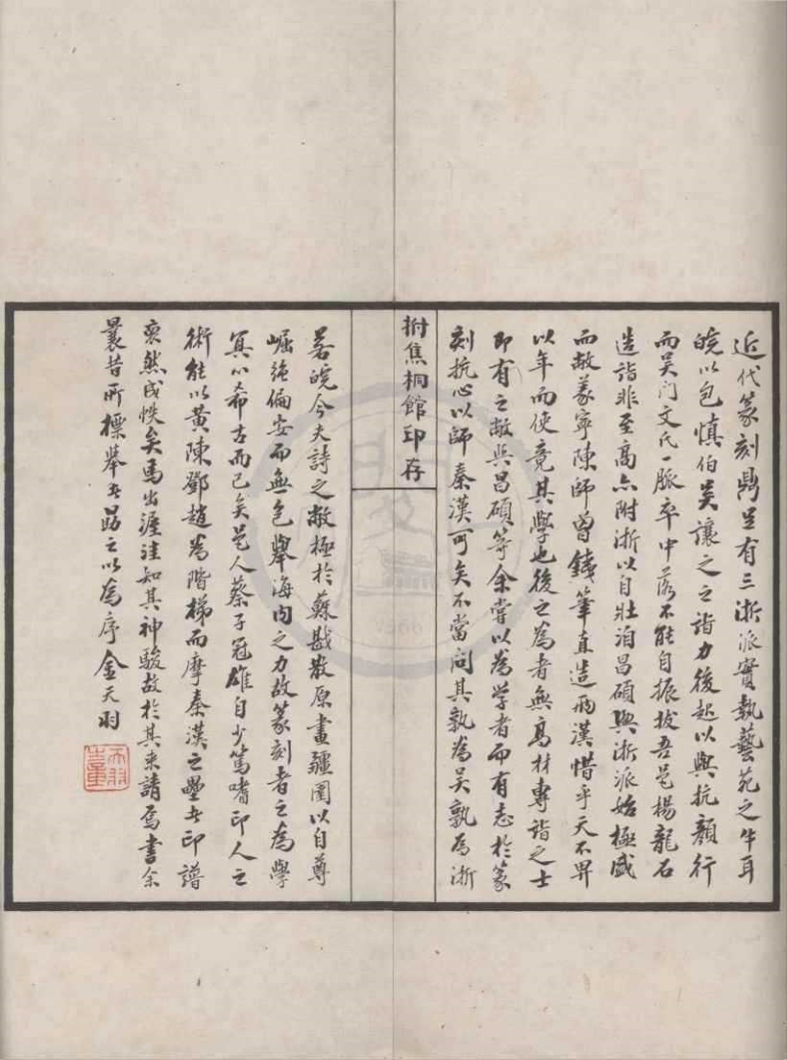 近代篆刻鼎足有三浙派實執藝苑之牛耳
皖以包慎伯吳讓之之詣力後起以與抗顏行
而吳門文氏一脈卒中落不能自振拔吾邑楊龍石
造詣非至高亦附浙以自壯洎昌碩興浙派始極盛
而敝義寧陳師曾錢筆直造兩漢惜乎天不畀
以年而使竟其學也後之為者無高材專詣之士
即有之敝與昌碩等余嘗以為学者而有志於篆
刻抗心以師秦漢可矣不當问其孰為吳孰為浙
拊焦桐館印存
若皖今夫詩之敝極於蘇戡散原畫疆圉以自尊
崛強偏安而無包舉海内之力故篆刻者之為學
冥心希古而已矣邑人蔡子冠雄自少篤嗜印人之
術能以黃陳鄧趙為階梯而摩秦漢之壘者印譜
裒然成帙矣馬出渥洼知其神駿故於其来請寫書余
曩昔所標舉者勗之以為序金天羽
天羽